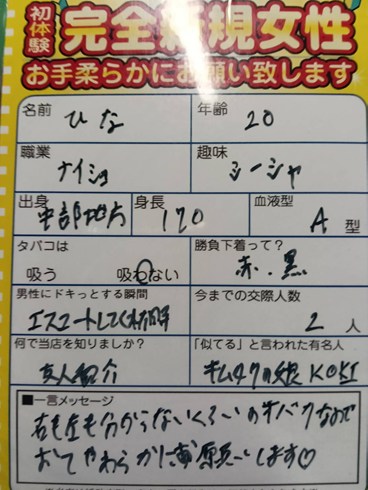 初体験
完全新規女性
お手柔らかにお願い致します
名前 ひな 年齢 20
職業 ナイショ 趣味 シーシャ
出身 中部地方 身長 170 血液型 A 型
タバコは 勝負下着って?
吸う 吸わない 赤、黒
男性にドキっとする瞬間 今までの交際人数
エスコートしてくれた時 2 人
何で当店を知りましたか? 「似てる」と言われた有名人
友人紹介 キムタクの娘 KOKI
■一言メッセージ
右も左も分からないくらいの なので
おてやわらかにお願いします♡